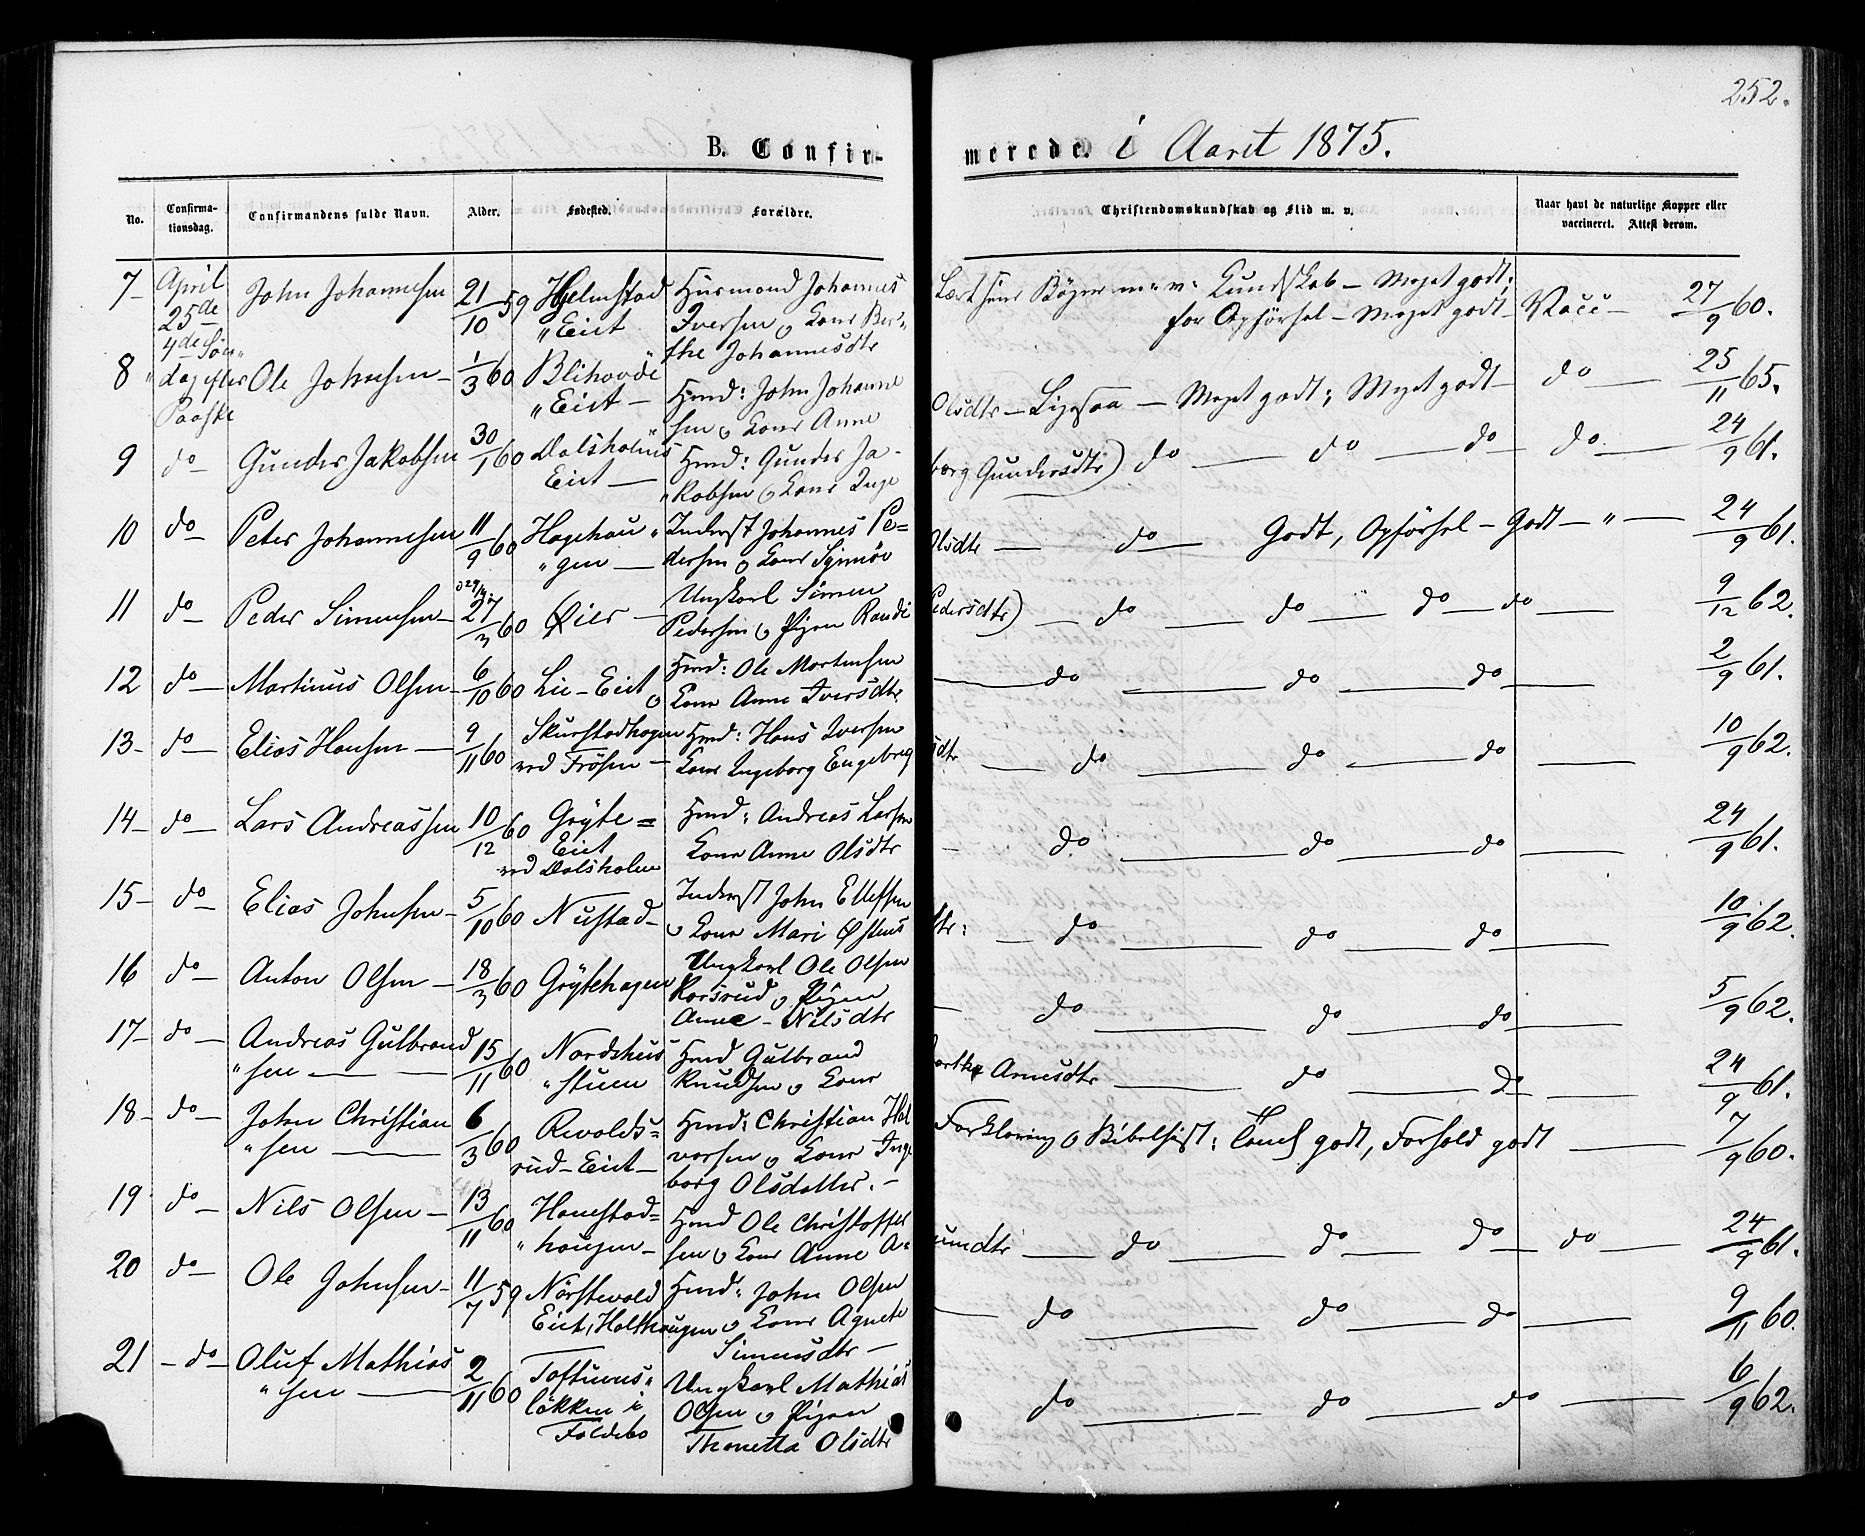 252.
B. Confir-
merede. i Aaret 1875.
No.
Confirma-
tionsdag.
Confirmandens fulde Navn.
Alder.
Fødested.
Forældre.
Christendomskundskab og Flid m. v.
Naar havt de naturlige Kopper eller
vaccineret. Attest derom.
7 - April 25de John Johannesen 21/10 59 Hjelmstad
" Eiet
Huusmand Johannes
Iversen o Kone Ber-
the Johannesdtr
Kundskab - Meget godt;
for Opførsel - Meget godt - Vacc - 27/9 60.
4de Søn-
8 " dag efter Ole Johnsen - 1/3 60
Paaske
" Eiet -
Hmd: John Johanne
sen o Kone Anne
Olsdtr - Ligesaa - Meget godt; Meget godt - do - 25/11 65.
9 do - Gunder Jakobsen 30/1 60 Dalsholms
Eiet -
Hmd: Gunder Ja-
" kobsen o Kone Inge
borg Gundersdtr) do - do - do - do - 24/9 61.
10 do - Peter Johannesen 11/9 60 Hagehau "
" gen -
Inderst Johannes Pe=
dersen o Kone Synnøv
Olsdtr - do - Godt, Opførsel - Godt - " - 24/9 61.
11 do - Peder Simensen - 27/3 60 Øier -
Ungkarl Simen
Pedersen o Pigen Randi
Pedersdtr) - do - do - do - do - 9/12 62.
12 do - Martinus Olsen - 6/10 60 Lie - Eiet
Hmd: Ole Mortensen
o Kone Anne Iversdtr
- do - do - do - 2/9 61.
13 - do - Elias Hansen - 9/11 60 Skurstadhagen
ved Frøsen -
Hmd: Hans Iversen
Kone Ingeborg Engebreg
sdtr - do - do - do - 10/9 62.
14 - do - Lars Andreassen 10/12 60 Grýte =
Eiet
ved Dalsholen
Hmd: Andreas Larsen
Kone Anne Olsdtr
- do - do - do - 24/9 61.
15 - do - Elias Johnsen - 5/10 60 Nustad -
Inderst John Ellefsen
o Kone Mari Østens
dtr: - do - do - do - 10/9 62.
16 do - Anton Olsen - 18/3 60 Grýtehagen
Ungkarl Ole Olsen
Korsrud o Pigen
Anne - Nilsdtr
- do - do - do - 5/9 62.
17 - do - Andreas Gulbrand
" sen - 15/11 60 Nordshus
" stuen
Hmd Gulbrand
Knudsen o Kone
Marthe Arnesdtr - do - do - 24/9 61.
18 - do - John Christian
" sen - 6/3 60
rud - Eiet -
Hmd: Christian Hal
vorsen o Kone Inge
borg Olsdatter. -
Forklaring o Bibelhist: godt, Forhold godt - 7/9 60.
19 do - Nils Olsen - 13/11 60 Hanestad=
" haugen -
Hmd Ole Christoffer
sen o Kone Anne A=
mundtr - do - do - do - do - 24/9 61.
20 do - Ole Johnsen - 11/7 59 Nørstevold
Eiet, Holthaugen
Hmd: John Olsen
o Kone Agnete
Simensdtr -
- do - do - do - 9/11 60.
21 - do - Oluf Mathias
" sen - 2/11 60 Toftums "
løkken i
Foldebo
Ungkarl Mathias
Olsen o Pigen
Thonetta Olsdtr
do - do - do - 6/9 62.